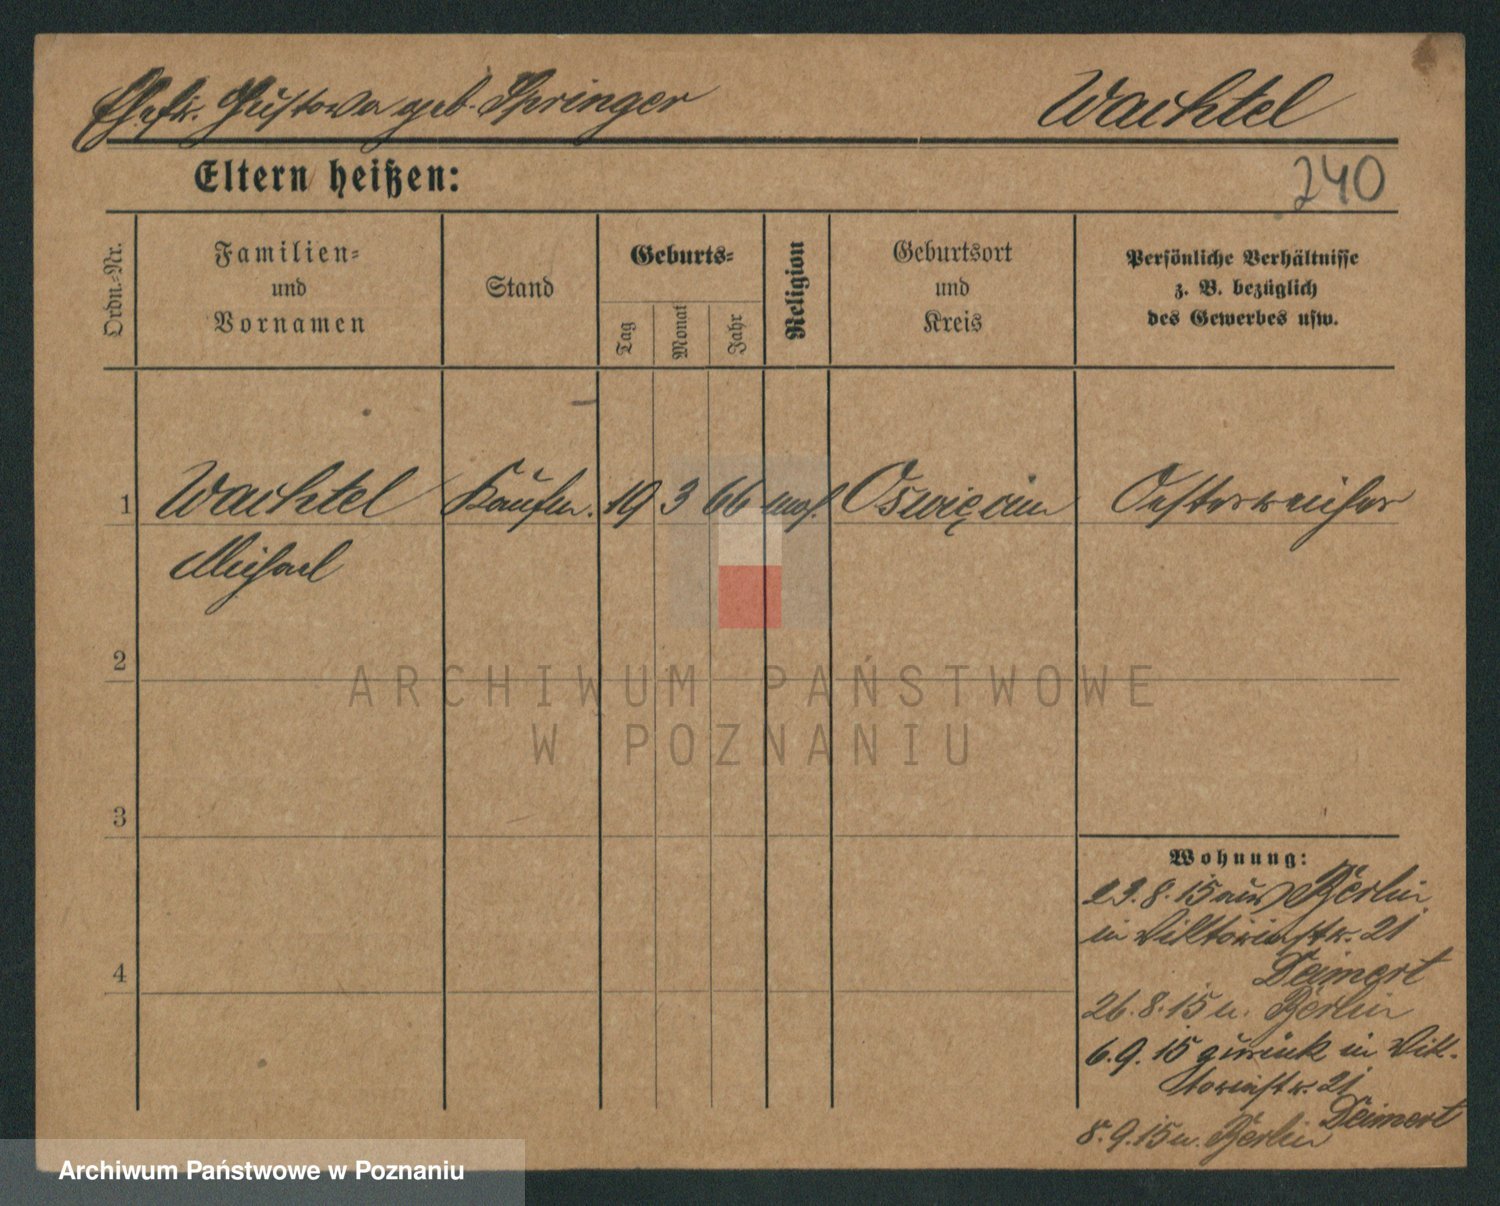 Ehefr. Gustava geb. Springer
Wachtel
Eltern heißen:
240
Ordn.-Nr.
Familien-
und
Vornamen
Stand
Geburts-
Tag
Monat
Jahr
Religion
Geburtsort
und
Kreis
Persönliche Verhältnisse
z. B. bezüglich
des Gewerbes usw.
1 Wachtel Kaufm. 19 3 66 mos. Oswięcim Oesterreicher
Michael
2
3
4
Wohnung:
23.8.15 aus Berlin
in Viktoriastr. 21
Deimert
26.8.15 n. Berlin
6.9.15 zurück in Vik-
toriastr. 21
Deimert
8.9.15 n. Berlin
ARCHIWUM PAŃSTWOWE
W POZNANIU
Archiwum Państwowe w Poznaniu